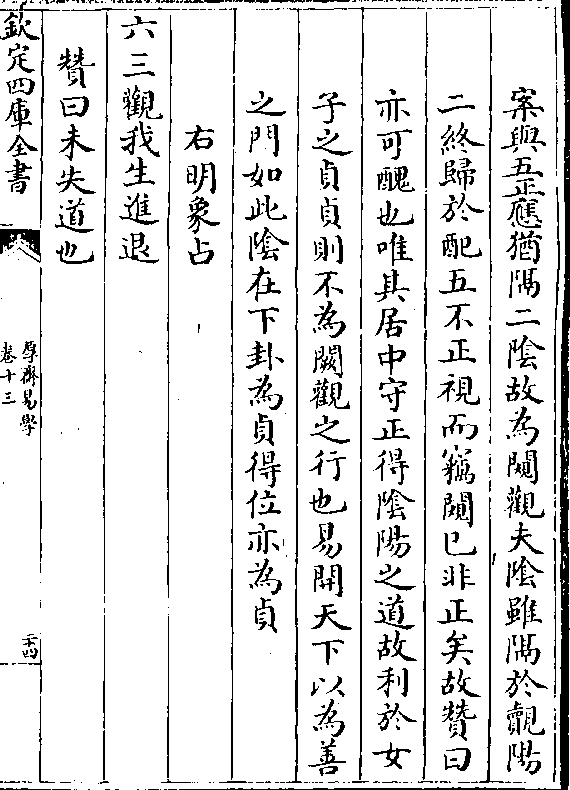 案與五正應猶隔二陰故為闚觀夫陰雖隔於覿陽
二終歸於配五不正視而竊闚已非正矣故贊曰
亦可醜也唯其居中守正得陰陽之道故利於女
子之貞貞則不為闚觀之行也易開天下以為善
之門如此陰在下卦為貞得位亦為貞
右明象占
六三觀我生進退
贊曰未失道也
欽定四庫全書
厚齋易學
卷十三
二十四